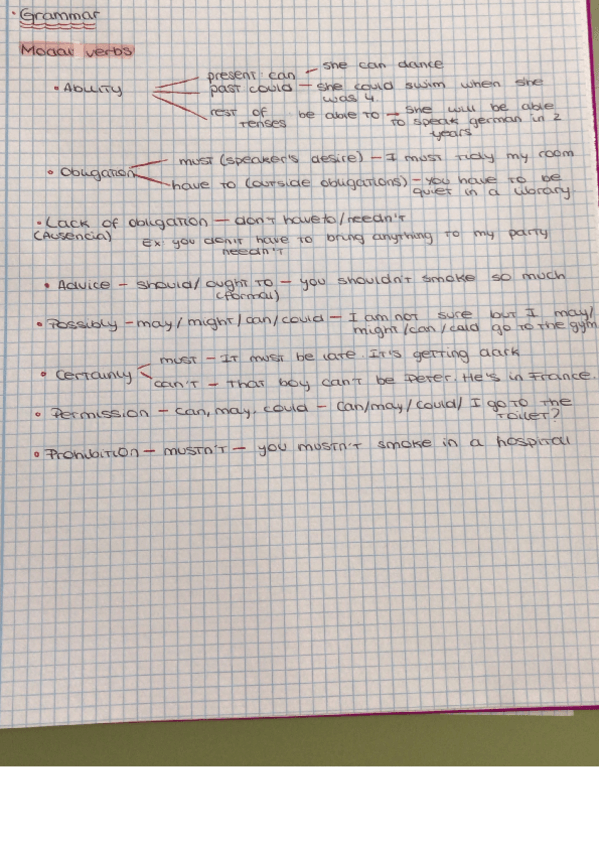 · Grammar
Modal verbs
• Ability
present can – she can dance
past could – she could swim when she was 4
rest of tenses be able to → she will be able to to speak german in 2 years
• Obligation
must (speaker's desire) – I must tidy my room
have to (outside obligations) – you have to be quiet in a library
• Lack of obligation – don't have to/needn't
(Ausencia) Ex you don't have to bring anything to my party
needn't
• Advice – should/ought to – you shouldn't smoke so much
(formal)
• Possibly – may/might/can/could – I am not sure but I may/
might/can/cold go to the gym
• Certainly
must – It must be late. It's getting dark
can't – That boy can't be Peter. He's in France.
• Permission – can, may, could – Can/may/could/ I go to the
toilet?
• Prohibition – mustn't – you mustn't smoke in a hospital